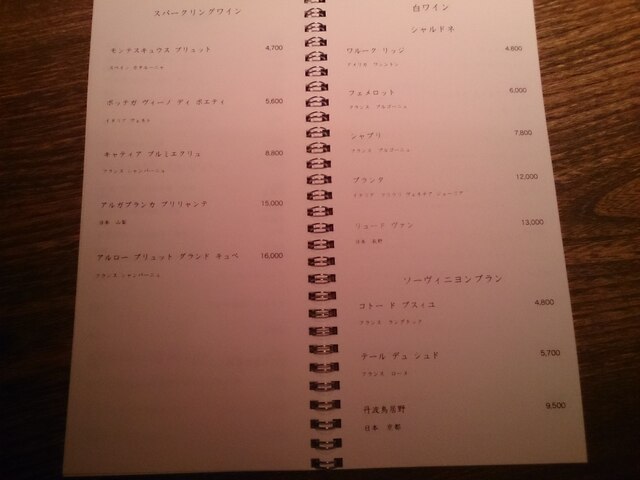 スパークリングワイン
モンテスキュウス ブリュット 4,700
スペイン カタルーニャ
ボッテガ ヴィーノ ディ ポエティ 5,600
イタリア ヴェネト
キャティア プルミエクリュ 8,800
フランス シャンパーニュ
アルガブランカ ブリリャンテ 15,000
日本 山梨
アルロー ブリュット グランド キュベ 16,000
フランス シャンパーニュ
白ワイン
シャルドネ
ワルーク リッジ 4,800
アメリカ ワシントン
フェメロット 6,000
フランス ブルゴーニュ
シャブリ 7,800
フランス ブルゴーニュ
プランタ 12,000
イタリア フリウリ ヴェネチア ジューリア
リュード ヴァン 13,000
日本 長野
ソーヴィニヨンブラン
コトー ド ブスィユ 4,800
フランス ラングドック
テール デュ シュド 5,700
フランス ローヌ
丹波鳥居野 9,500
日本 京都